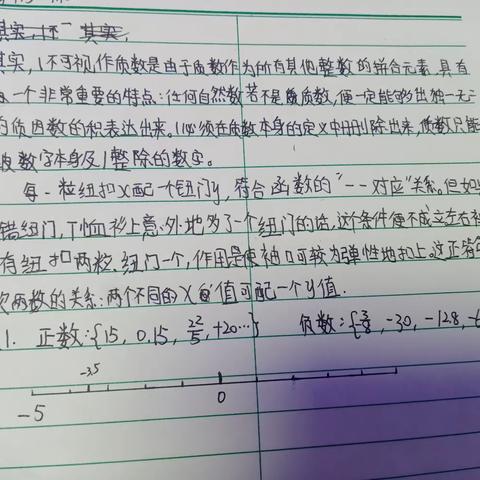 其实,1不可视作质数是由于质数作为所有其他整数的拼合元素,具有
一个非常重要的特点:任何自然数若不是质数,便一定能够出独一无二
的质因数的积表达出来。1必须在质数本身的定义中删除出来,质数只能
数字本身及1整除的数字。
每一粒纽扣X配一个钮门y,符合函数的"一一对应"关系。但如
错纽门,T恤衫上意外地多了一个纽门的话,这个条件便不成立左右袖
有纽扣两粒,纽门一个,作用是使袖口可较为弹性地扣上。这正符
次函数的关系:两个不同的X值可配一个y值.
1. 正数:{15, 0.15, 22/5, +20…} 负数:{-3/8, -30, -128, -6
-3.5
-5 0